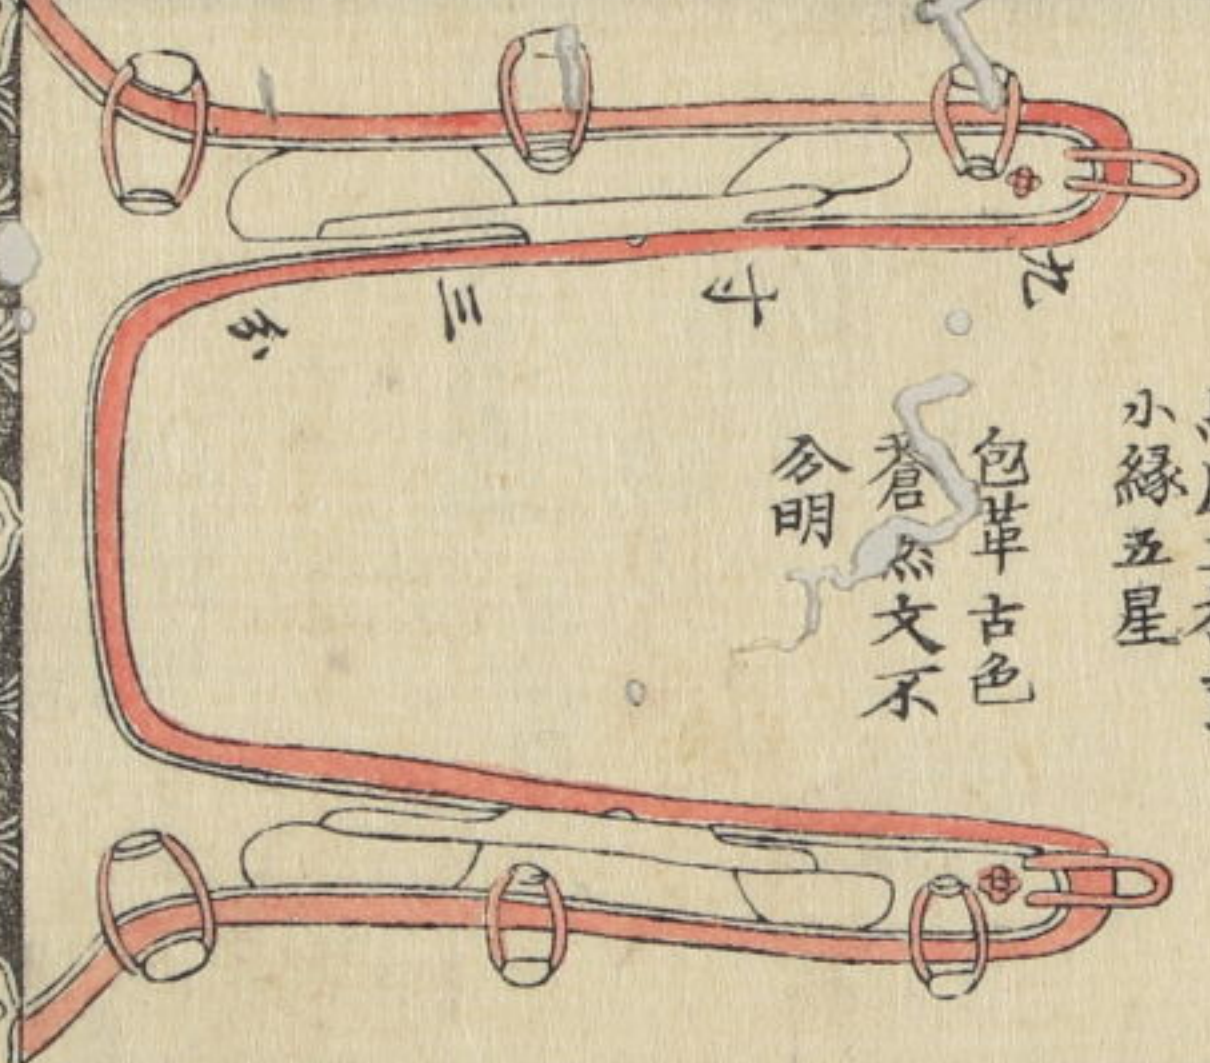 小縁五星
包革古色
蒼然文不
分明
九寸三分